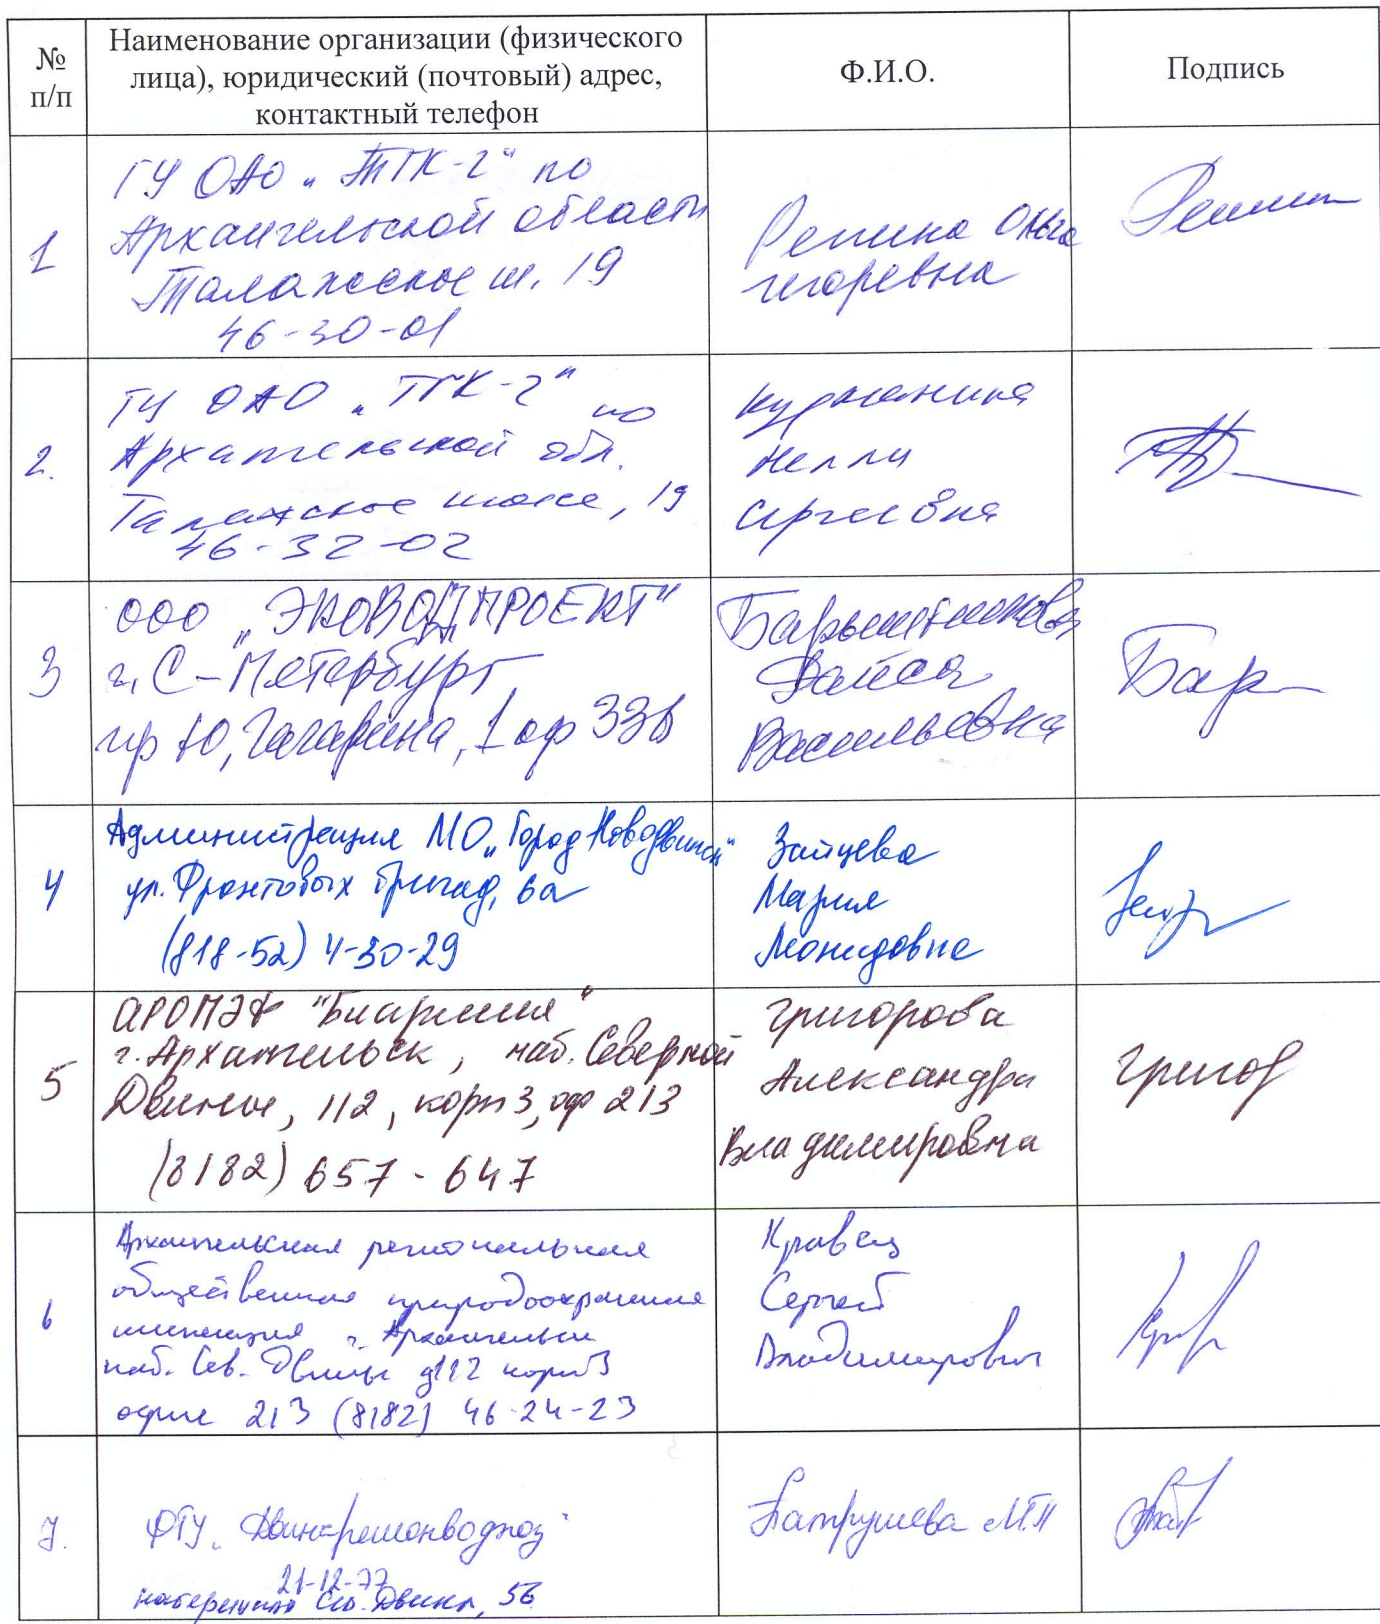 №
п/п
Наименование организации (физического
лица), юридический (почтовый) адрес,
контактный телефон
Ф.И.О.
Подпись
1
ГУ ОАО „ТГК-2" по
Архангельской области
Талажское ш. 19
46-30-01
Репина Ольга
Игоревна
2.
ГУ ОАО „ТГК-2" по
Архангельской обл.
Талажское шоссе, 19
46-32-02
Нелли
Сергеевна
3
ООО „ЭКОВОДПРОЕКТ"
г. С-Петербург
пр Ю, Гагарина, 1 оф
Барышникова
Васильевна
Бар
4
Администрация МО „Город Новодвинск"
ул. Фронтовых бригад, 6а
(818-52) 4-30-29
Зайцева
Мария
Леонидовна
5
АРОМЭФ "Биармия"
г. Архангельск, наб. Северной
Двины, 112, корп 3, оф 213
(8182) 657-647
Григорова
Александра
Владимировна
Григор
6
Архангельская региональная
общественная природоохранная
инспекция г. Архангельск
наб. Сев. Двины д112 корп3
офис 213 (8182) 46-24-23
Кравец
Сергей
Владимирович
7.
ФГУ „Двинарегионводхоз"
21-12-77
набережная Сев. Двины, 56
Патрушева М.П